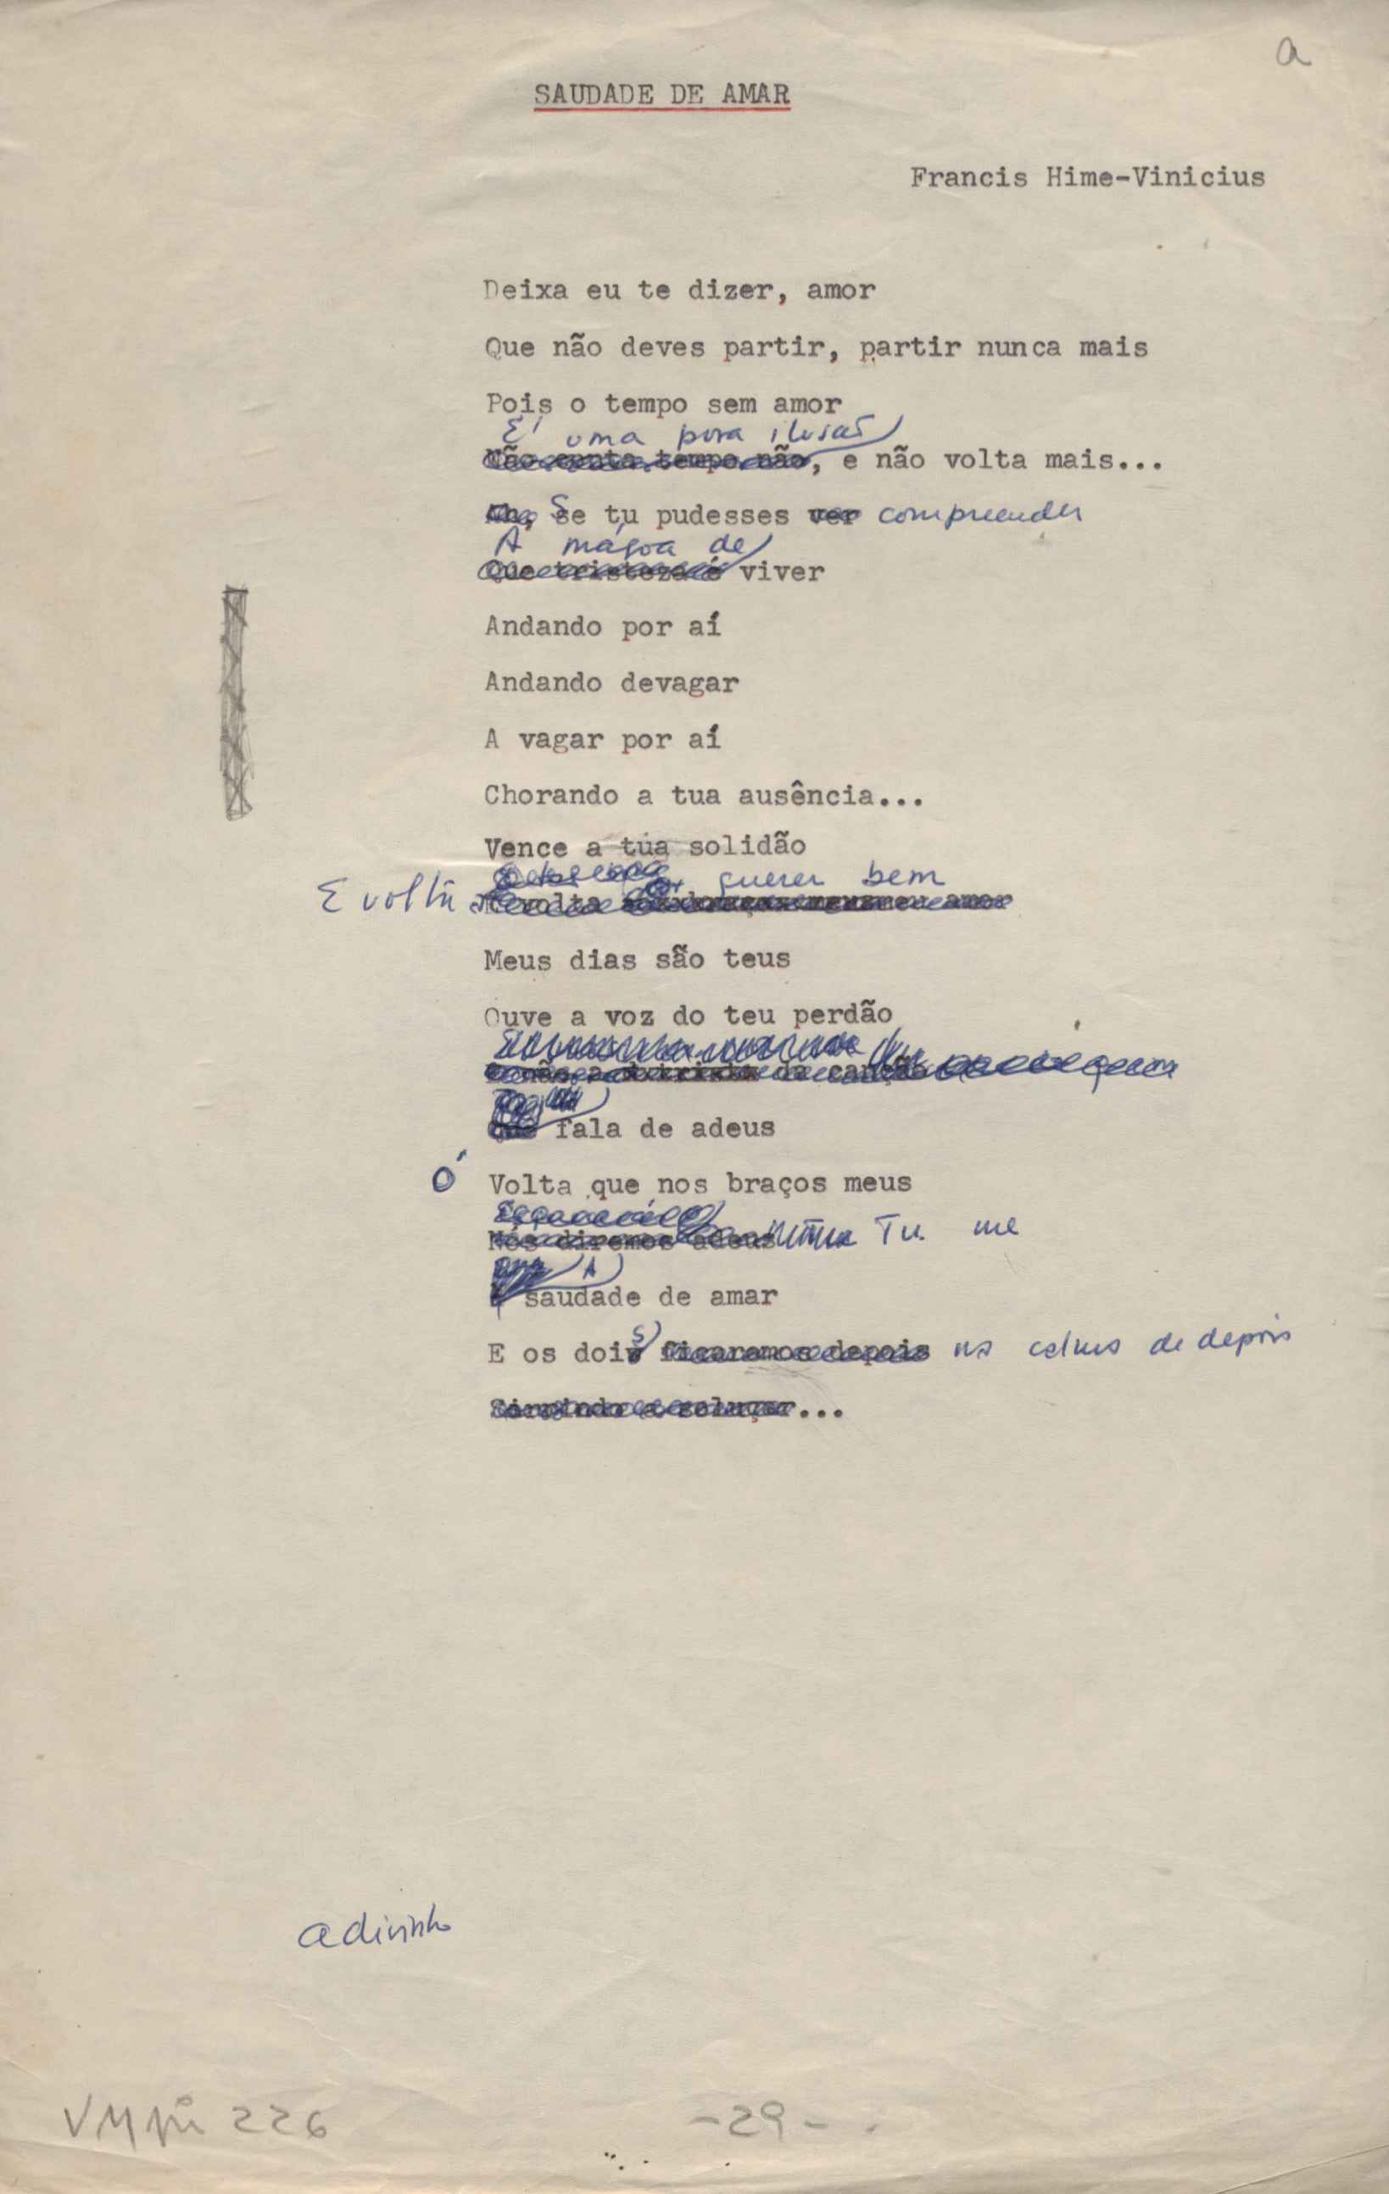 a
SAUDADE DE AMAR
Francis Hime-Vinicius
Deixa eu te dizer, amor
Que não deves partir, partir nunca mais
Pois o tempo sem amor
É uma pura ilusão
Não conta tempo não, e não volta mais...
Ah, Se tu pudesses ver compreender
A mágoa de
Que tristeza é viver
Andando por aí
Andando devagar
A vagar por aí
Chorando a tua ausência...
Vence a tua solidão
querer bem
E volta E volta meu amor
Meus dias são teus
Ouve a voz do teu perdão
E não a da canção
Que fala de adeus
Ó Volta que nos braços meus
Nós diremos adeus Tu me
A
saudade de amar
s
E os dois ficaremos depois de depois
Sorrindo a soluçar...
adivinho
226
-29-